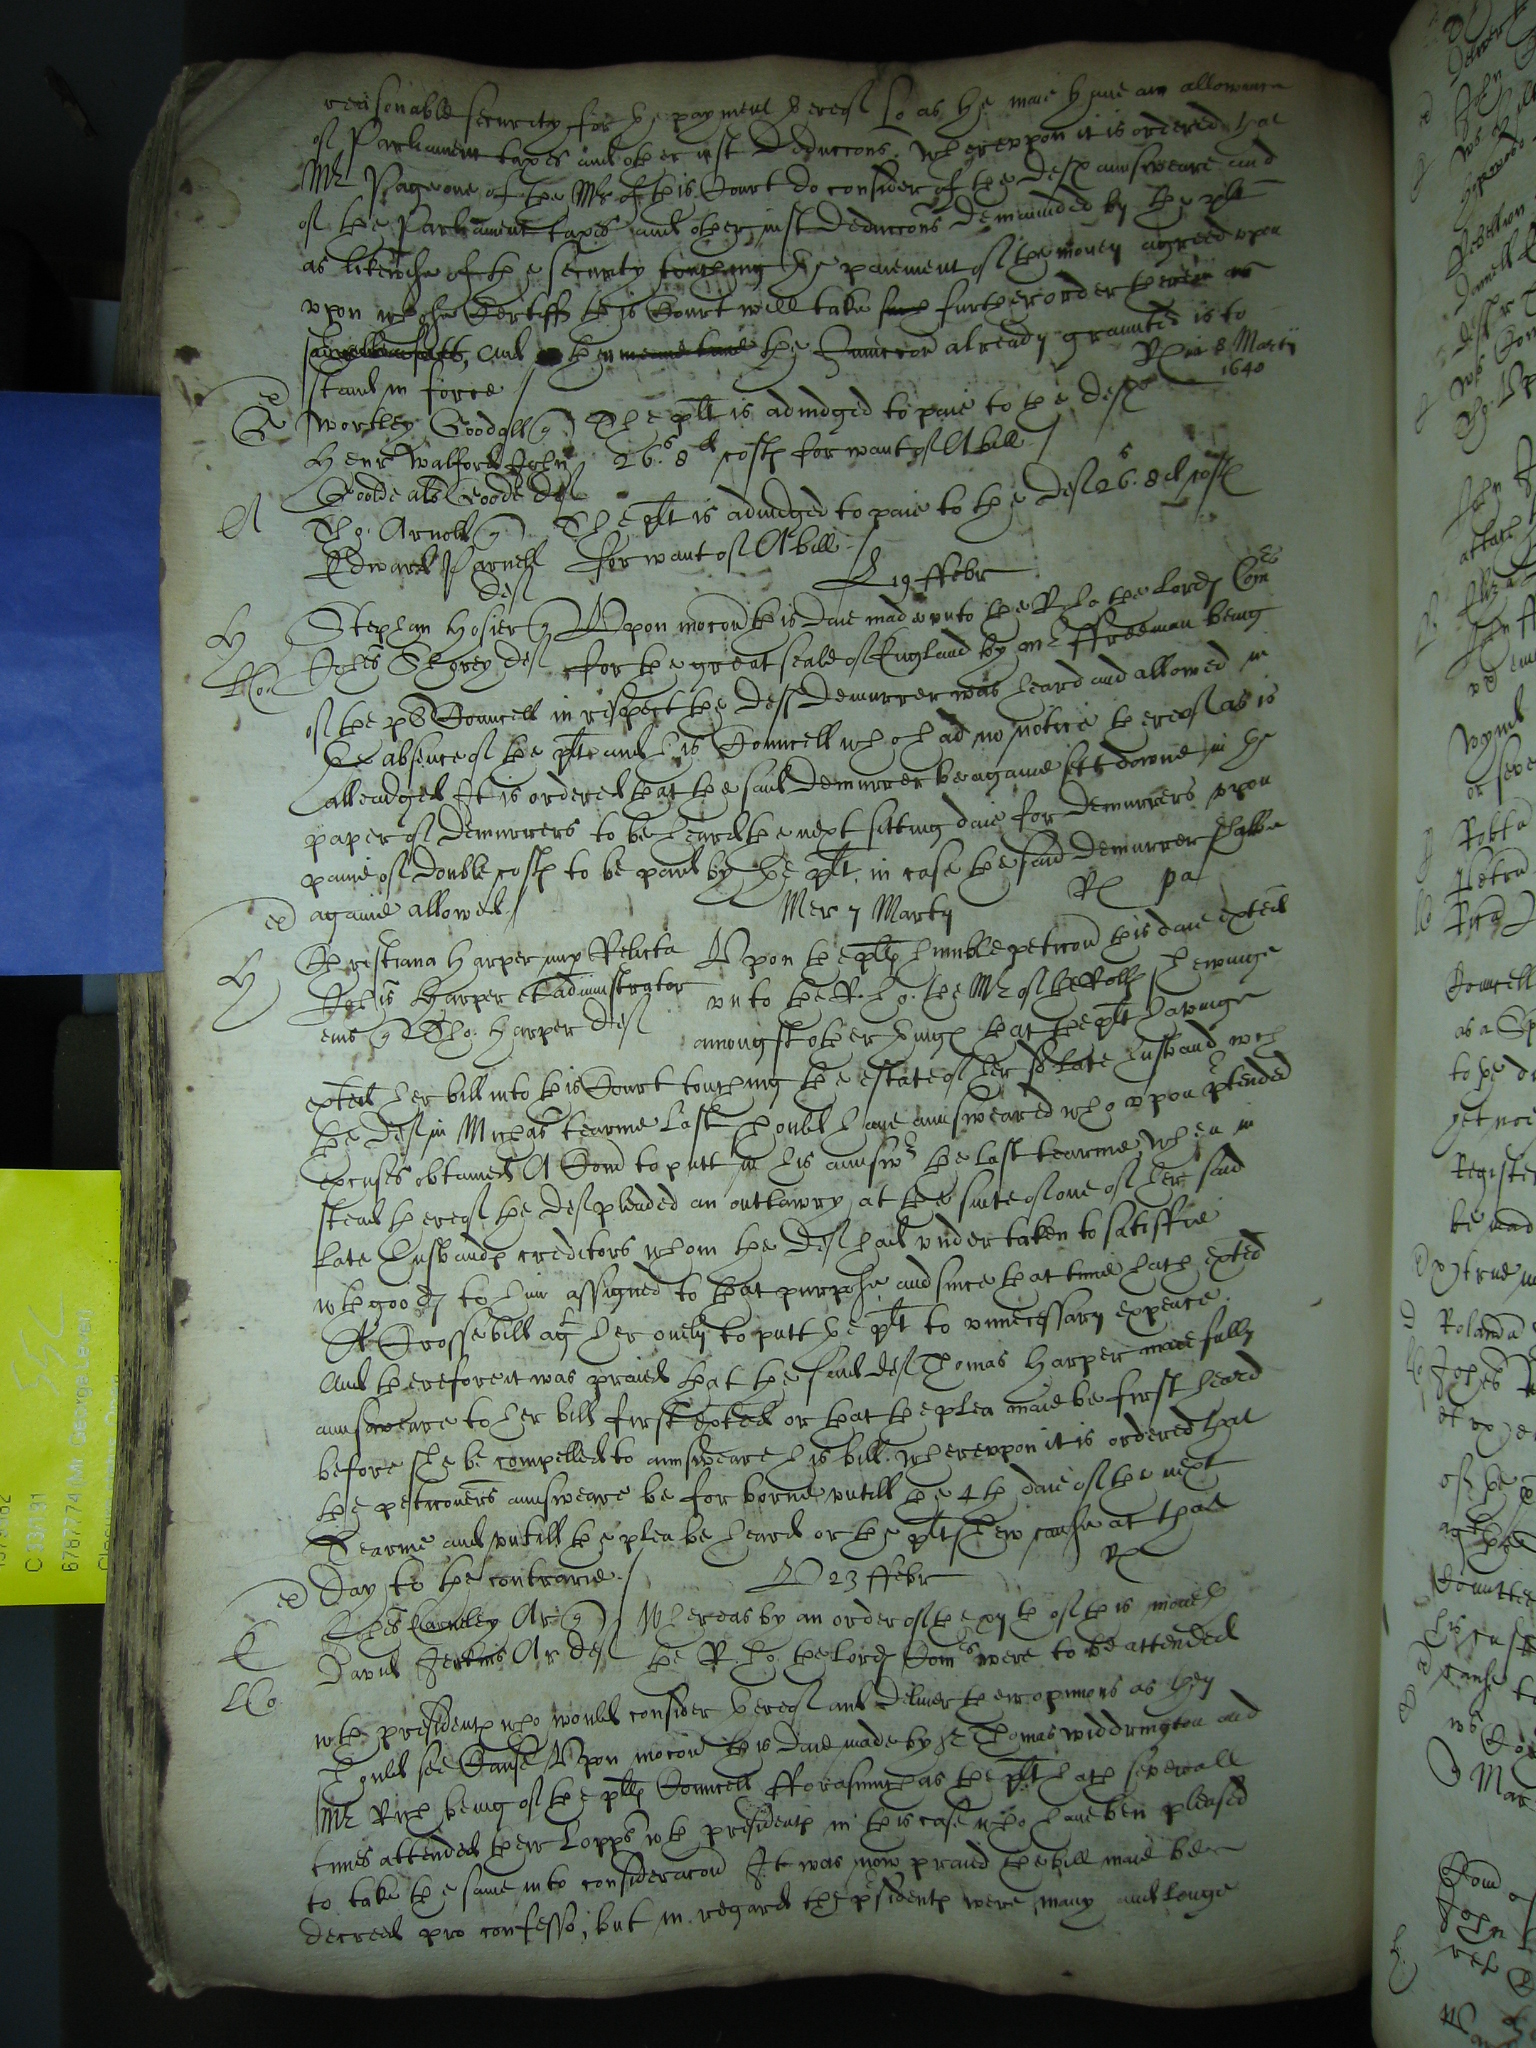 reasonable security for the payment thereof so as he maie have an allowance
of Parliament taxes and other iust Deduccons. Wherevpon it is ordered that
Mr Page one of the Mrs of this Court do consider of the deftes aunsweare and
of the Parliament taxes and other iust deduccons demaunded by the plt
as likewise of the security touching the paiement of the money agreed vpon
vpon whose Certiff this Court will take such further order therein as
and the Iniuccon already graunted is to
stand in force /
Rx in 8 Martij
1640
Wortley Goodall q The plt is adiudged to paie to the deftes
Henr Walford John 26s 8d costs for want of A bill /
Goode als Goode def
Tho: Arnold q The plt is adiudged to paie to the def 26s. 8d costs
Edward Parnell for want of A bill /
def
19 ffebr
Stephan Hosier q Vpon mocon this daie made vnto the R ho the Lords Comrs
Johes Skorey def for the great seale of England by Mr ffreeman being
of the plts Councell in respect the deftes demurrer was heard and allowed in
the absence of the plt and his Councell who had no notice thereof as is
alleadged It is ordered that the said demurrer be againe sett downe in the
paper of demurrers to be heard the next sitting daie for demurrers vpon
paine of double costs to be paid by the plt, in case the said demurrer shalbe
againe allowed /
Rx pa
Mer 7 Martij
Christiana Harper nup Relicta Vpon the plts humble peticon this daie exted
Johis Harper et administrator vnto the R. ho. the Mr of the Rolls shewinge
eius q Tho. Harper def amongst other things that the plt havinge
exted her bill into this Court touching the estate of her sd late husband wch
the def in Michas tearme last should have aunsweared who vpon ptended
excuses obtained A Com to putt in his aunswr the last tearme when in
stead thereof the def pleaded an outlawry at the suite of one of her said
late husbands creditors whom the def had vndertaken to satisfie
wth goods to him assigned to that purpose, and since that time hath exted
A Crosse bill agt her onely to putt the plt to vnnecessary expence.
And therefore it was praied that the said def Thomas Harper maie fully
aunsweare to her bill first exted or that the plea maie be first heard
before she be compelled to aunsweare his bill. Wherevpon it is ordered that
the peticoners aunsweare be forborne vntill the 4th daie of the next
Tearme and vntill the plea be heard or the plt shew cause at that
day to the contrarie /
Rx
23 ffebr
Ar q Whereas by an order of the xjth of this moneth
David Jenkins Ar def the R. ho. the Lords Comrs were to be attended
wth presidents who would consider thereof and deliver their opinions as they
should see Cause Vpon mocon this daie made by Sr Thomas Widdrington and
Mr Rich being of the plts Councell fforasmuch as the plt hath severall
times attended their Lopps wth presidents in this case who have ben pleased
to take the same into consideracon It was now praied the bill maie be
decreed pro confesso, but in regard the psidents were many and longe
C 33/131
6767774/Mr George Leven